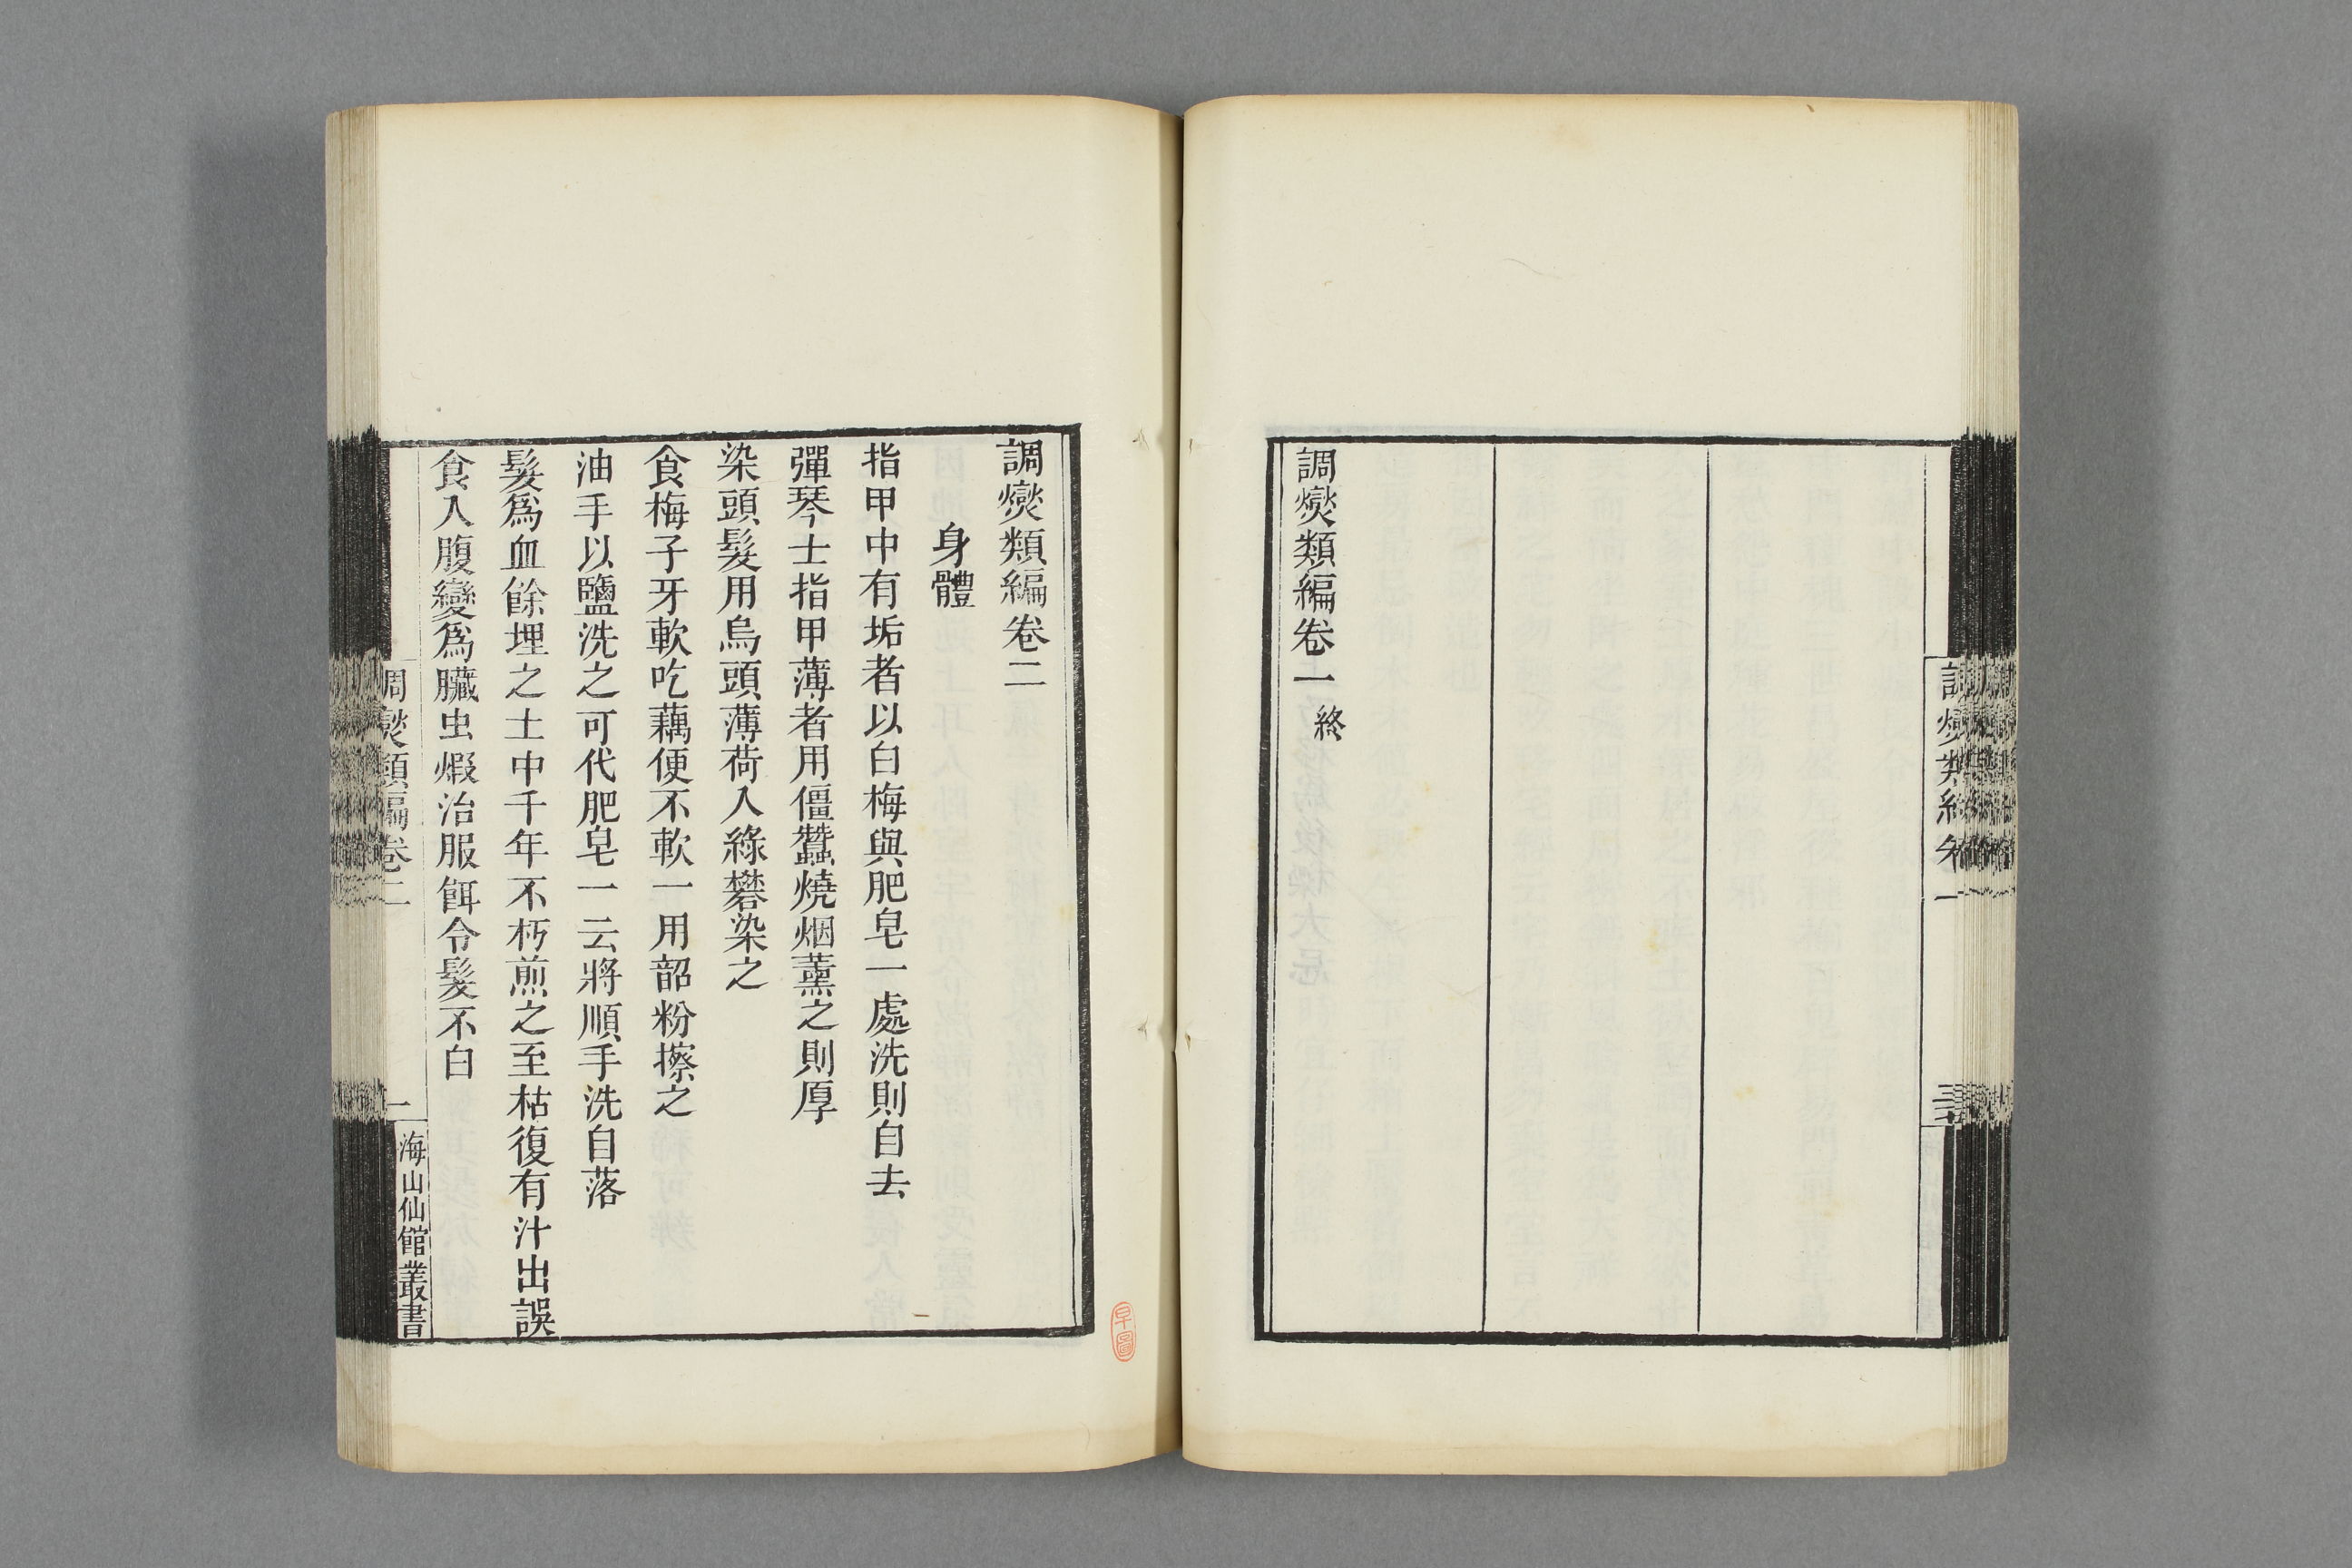 調爕類編卷一
調爕類編卷一 終
調爕類編卷二
身體
指甲中有垢者以白梅與肥皂一處洗則自去
彈琴士指甲薄者用僵蠶燒烟薰之則厚
染頭髮用烏頭薄荷入綠礬染之
食梅子牙軟吃藕便不軟一用韶粉擦之
油手以鹽洗之可代肥皂一云將順手洗自落
髮爲血餘埋之土中千年不朽煎之至枯復有汁出誤
食入腹變爲臟虫煆治服餌令髮不白
調爕類編卷二
一
海山仙館叢書